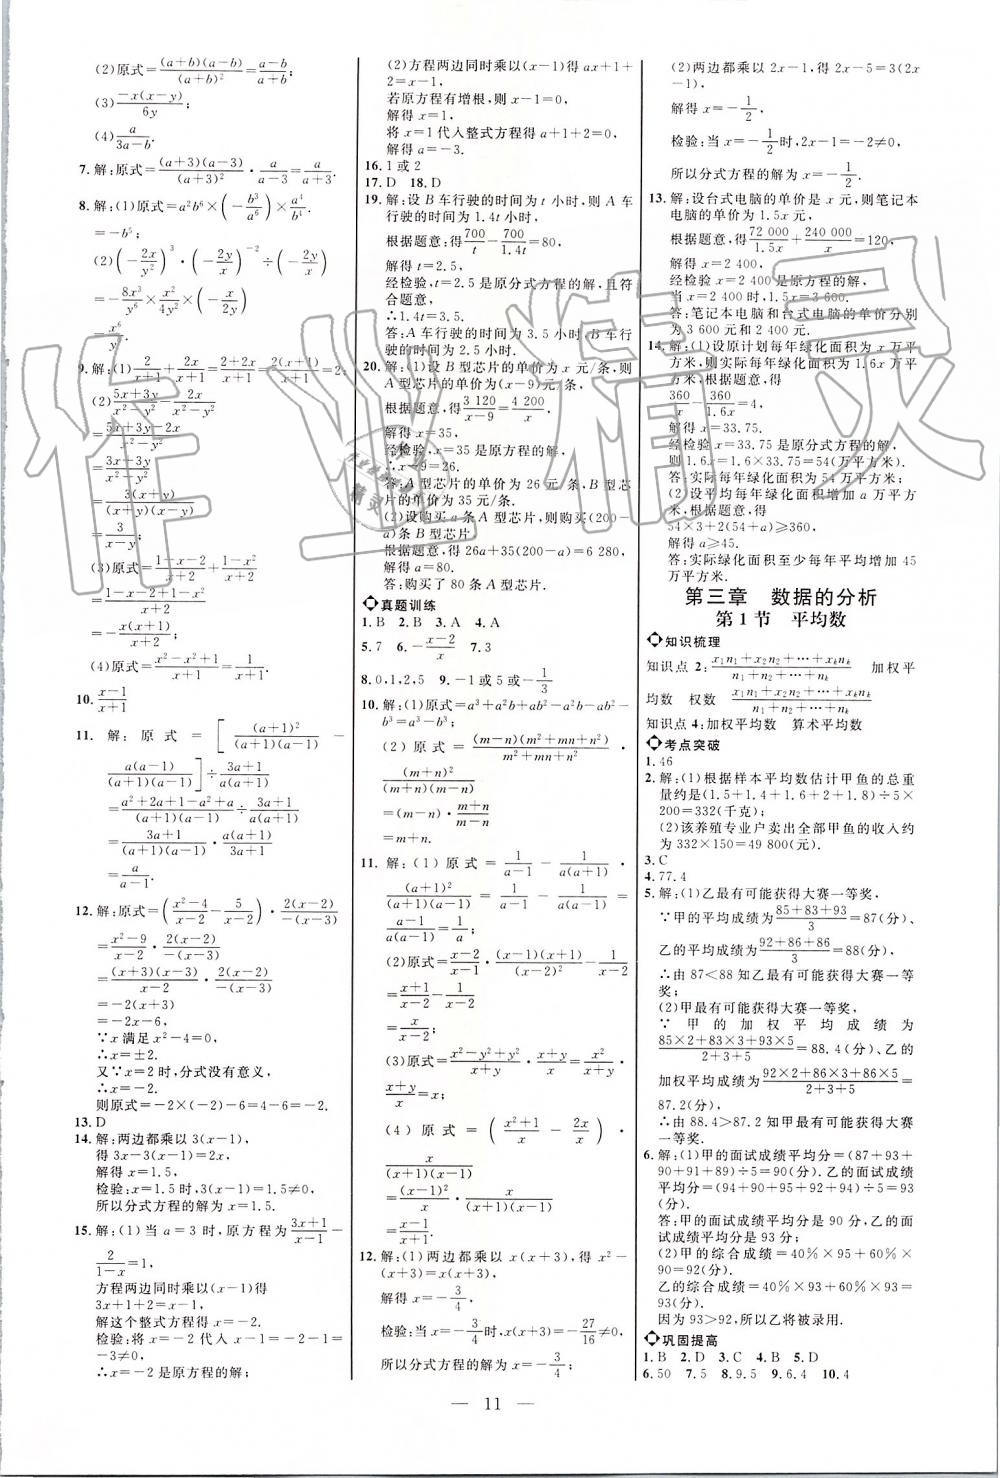 (2)原式=(a+b)(a-b)/(a+b)²=a-b/a+b;
(3)-x(x-y)/6y;
(4)a/3a-b.
7.解:原式=(a+3)(a-3)/(a+3)²·a/a-3=a/a+3.
8.解:(1)原式=a²b⁶×(-b³/a⁶)×a⁴/b⁴.
=-b⁵;
(2)(-2x/y²)³·(-2y/x)⁻²÷(-2y/x)
=-8x³/y⁶×x²/4y²×(-x/2y)
=x⁶/y⁹.
9.解:(1)2/x+1+2x/x+1=2+2x/x+1=2(x+1)/x+1=2;
(2)5x+3y/x²-y²-2x/x²-y²
=5x+3y-2x/x²-y²
=3x+3y/x²-y²
=3(x+y)/(x+y)(x-y)
=3/x-y;
(3)原式=1-x-2/x+2+1-x²/x+2
=1-x-2+1-x²/x+2
=-x(x+1)/x+2;
(4)原式=x²-x²+1/x+1=1/x+1.
10.x-1/x+1
11.解:原式=[(a+1)²/(a+1)(a-1)-
a(a-1)/(a+1)(a-1)]÷3a+1/a(a+1)
=a²+2a+1-a²+a/(a+1)(a-1)÷3a+1/a(a+1)
=3a+1/(a+1)(a-1)·a(a+1)/3a+1
=a/a-1.
12.解:原式=(x²-4/x-2-5/x-2)·2(x-2)/-(x-3)
=x²-9/x-2·2(x-2)/-(x-3)
=(x+3)(x-3)/x-2·2(x-2)/-(x-3)
=-2(x+3)
=-2x-6,
∵x满足x²-4=0,
∴x=±2.
又∵x=2时,分式没有意义,
∴x=-2.
则原式=-2×(-2)-6=4-6=-2.
13.D
14.解:两边都乘以3(x-1),
得3x-3(x-1)=2x,
解得x=1.5,
检验:x=1.5时,3(x-1)=1.5≠0,
所以分式方程的解为x=1.5.
15.解:(1)当a=3时,原方程为3x+1/x-1-
2/1-x=1,
方程两边同时乘以(x-1)得
3x+1+2=x-1,
解这个整式方程得x=-2.
检验:将x=-2代入x-1=-2-1=
-3≠0,
∴x=-2是原方程的解;
(2)方程两边同时乘以(x-1)得ax+1+
2=x-1,
若原方程有增根,则x-1=0,
解得x=1,
将x=1代入整式方程得a+1+2=0,
解得a=-3.
16.1或2
17.D 18.D
19.解:设B车行驶的时间为t小时,则A车
行驶的时间为1.4t小时,
根据题意:得700/t-700/1.4t=80,
解得t=2.5,
经检验,t=2.5是原分式方程的解,且符
合题意,
∴1.4t=3.5.
答:A车行驶的时间为3.5小时,B车行
驶的时间为2.5小时.
20.解:(1)设B型芯片的单价为x元/条,则
A型芯片的单价为(x-9)元/条,
根据题意,得3 120/x-9=4 200/x,
解得x=35,
经检验,x=35是原方程的解,
∴x-9=26.
答:A型芯片的单价为26元/条,B型芯
片的单价为35元/条.
(2)设购买a条A型芯片,则购买(200-
a)条B型芯片,
根据题意,得26a+35(200-a)=6 280,
解得a=80.
答:购买了80条A型芯片.
真题训练
1.B 2.B 3.A 4.A
5.7 6.-x-2/x 7.3
8.0,1,2,5 9.-1或5或-1/3
10.解:(1)原式=a³+a²b+ab²-a²b-ab²-
b³=a³-b³;
(2)原式=(m-n)(m²+mn+n²)/m²+mn+n²·
(m+n)²/(m+n)(m-n)
=(m-n)·m+n/m-n
=m+n.
11.解:(1)原式=1/a-1-1/a(a+1)·
(a+1)²/(a+1)(a-1)=1/a-1-1/a(a-1)=
a-1/a(a-1)=1/a;
(2)原式=x-2/x-1·(x-1)(x+1)/(x-2)²-1/x-2
=x+1/x-2-1/x-2
=x/x-2;
(3)原式=x²-y²+y²/x+y·x+y/x=x²/x+y·
x+y/x=x;
(4)原式=(x²+1/x-2x/x)·
x/(x+1)(x-1)
=(x-1)²/x·x/(x+1)(x-1)
=x-1/x+1.
12.解:(1)两边都乘以x(x+3),得x²-
(x+3)=x(x+3),
解得x=-3/4,
检验:当x=-3/4时,x(x+3)=-27/16≠0,
所以分式方程的解为x=-3/4;
(2)两边都乘以2x-1,得2x-5=3(2x
-1),
解得x=-1/2,
检验:当x=-1/2时,2x-1=-2≠0,
所以分式方程的解为x=-1/2.
13.解:设台式电脑的单价是x元,则笔记本
电脑的单价为1.5x元,
根据题意得72 000/1.5x+240 000/x=120,
解得x=2 400,
经检验x=2 400是原方程的解,
当x=2 400时,1.5x=3 600.
答:笔记本电脑和台式电脑的单价分别
为3 600元和2 400元.
14.解:(1)设原计划每年绿化面积为x万平
方米,则实际每年绿化面积为1.6x万平
方米,根据题意,得
360/x-360/1.6x=4,
解得:x=33.75,
经检验x=33.75是原分式方程的解,
则1.6x=1.6×33.75=54(万平方米).
答:实际每年绿化面积为54万平方米;
(2)设平均每年绿化面积增加a万平方
米,根据题意得
54×3+2(54+a)≥360,
解得a≥45.
答:实际绿化面积至少每年平均增加45
万平方米.
第三章 数据的分析
第1节 平均数
知识梳理
知识点2:x₁n₁+x₂n₂+…+xₖnₖ/n₁+n₂+…+nₖ 加权平
均数 权数 x₁n₁+x₂n₂+…+xₖnₖ/n₁+n₂+…+nₖ
知识点4:加权平均数 算术平均数
考点突破
1.46
2.解:(1)根据样本平均数估计甲鱼的总重
量约是(1.5+1.4+1.6+2+1.8)÷5×
200=332(千克);
(2)该养殖专业户卖出全部甲鱼的收入约
为332×150=49 800(元).
3.C
4.77.4
5.解:(1)乙最有可能获得大赛一等奖,
∵甲的平均成绩为85+83+93/3=87(分),
乙的平均成绩为92+86+86/3=88(分),
∴由87<88知乙最有可能获得大赛一等
奖;
(2)甲最有可能获得大赛一等奖,
∵甲的加权平均成绩为
85×2+83×3+93×5/2+3+5=88.4(分),乙的
加权平均成绩为92×2+86×3+86×5/2+3+5=
87.2(分),
∴由88.4>87.2知甲最有可能获得大赛
一等奖.
6.解:(1)甲的面试成绩平均分=(87+93+
90+91+89)÷5=90(分),乙的面试成绩
平均分=(94+90+95+92+94)÷5=93
(分).
答:甲的面试成绩平均分是90分,乙的面
试成绩平均分是93分;
(2)甲的综合成绩=40%×95+60%×
90=92(分),
乙的综合成绩=40%×93+60%×93=
93(分).
因为93>92,所以乙将被录用.
巩固提高
1.B 2.D 3.C 4.B 5.D
6.50 7.5 8.9.5 9.6.4 10.4
— 11 —
作业精灵